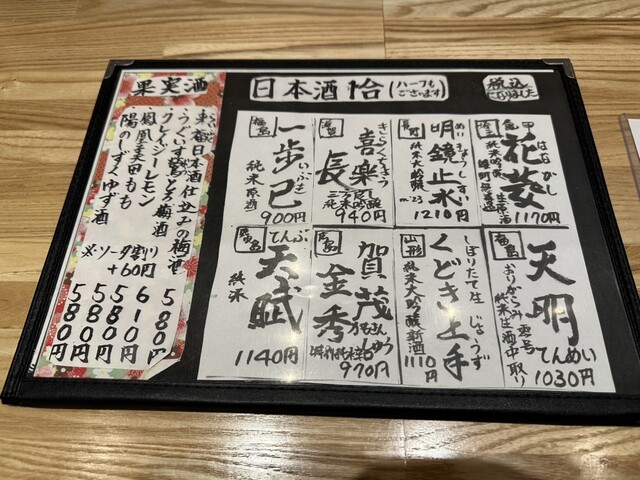 日本酒 恰 (ハーフもございます)
税込
になりました
埼玉
亀甲
花菱
はなびし
純米吟醸
雄町無濾過
生原酒
1170円
長野
明鏡止水
めいきょうしすい
純米大吟醸
m'23
1210円
滋賀
喜楽長
きらくちょう
純米吟醸
940円
福島
一歩己
いぶき
純米原酒
900円
福島
天明
てんめい
おりがらみ 零号
純米生酒中取り
1030円
山形
くどき上手
しぼりたて生 じょうず
純米大吟醸新酒
1110円
広島
賀茂金秀
かもきんしゅう
特別純米
970円
天賦
てんぶ
純米
1140円
果実酒
東京都日本酒仕込みの梅酒 580円
うぐいす鶯とろ梅酒 610円
クレイジーレモン 580円
鳳凰美田もも 580円
陽のしずくゆず酒 580円
※ソーダ割り
+60円